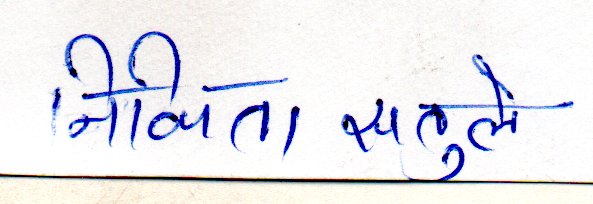 निकिता सातुले